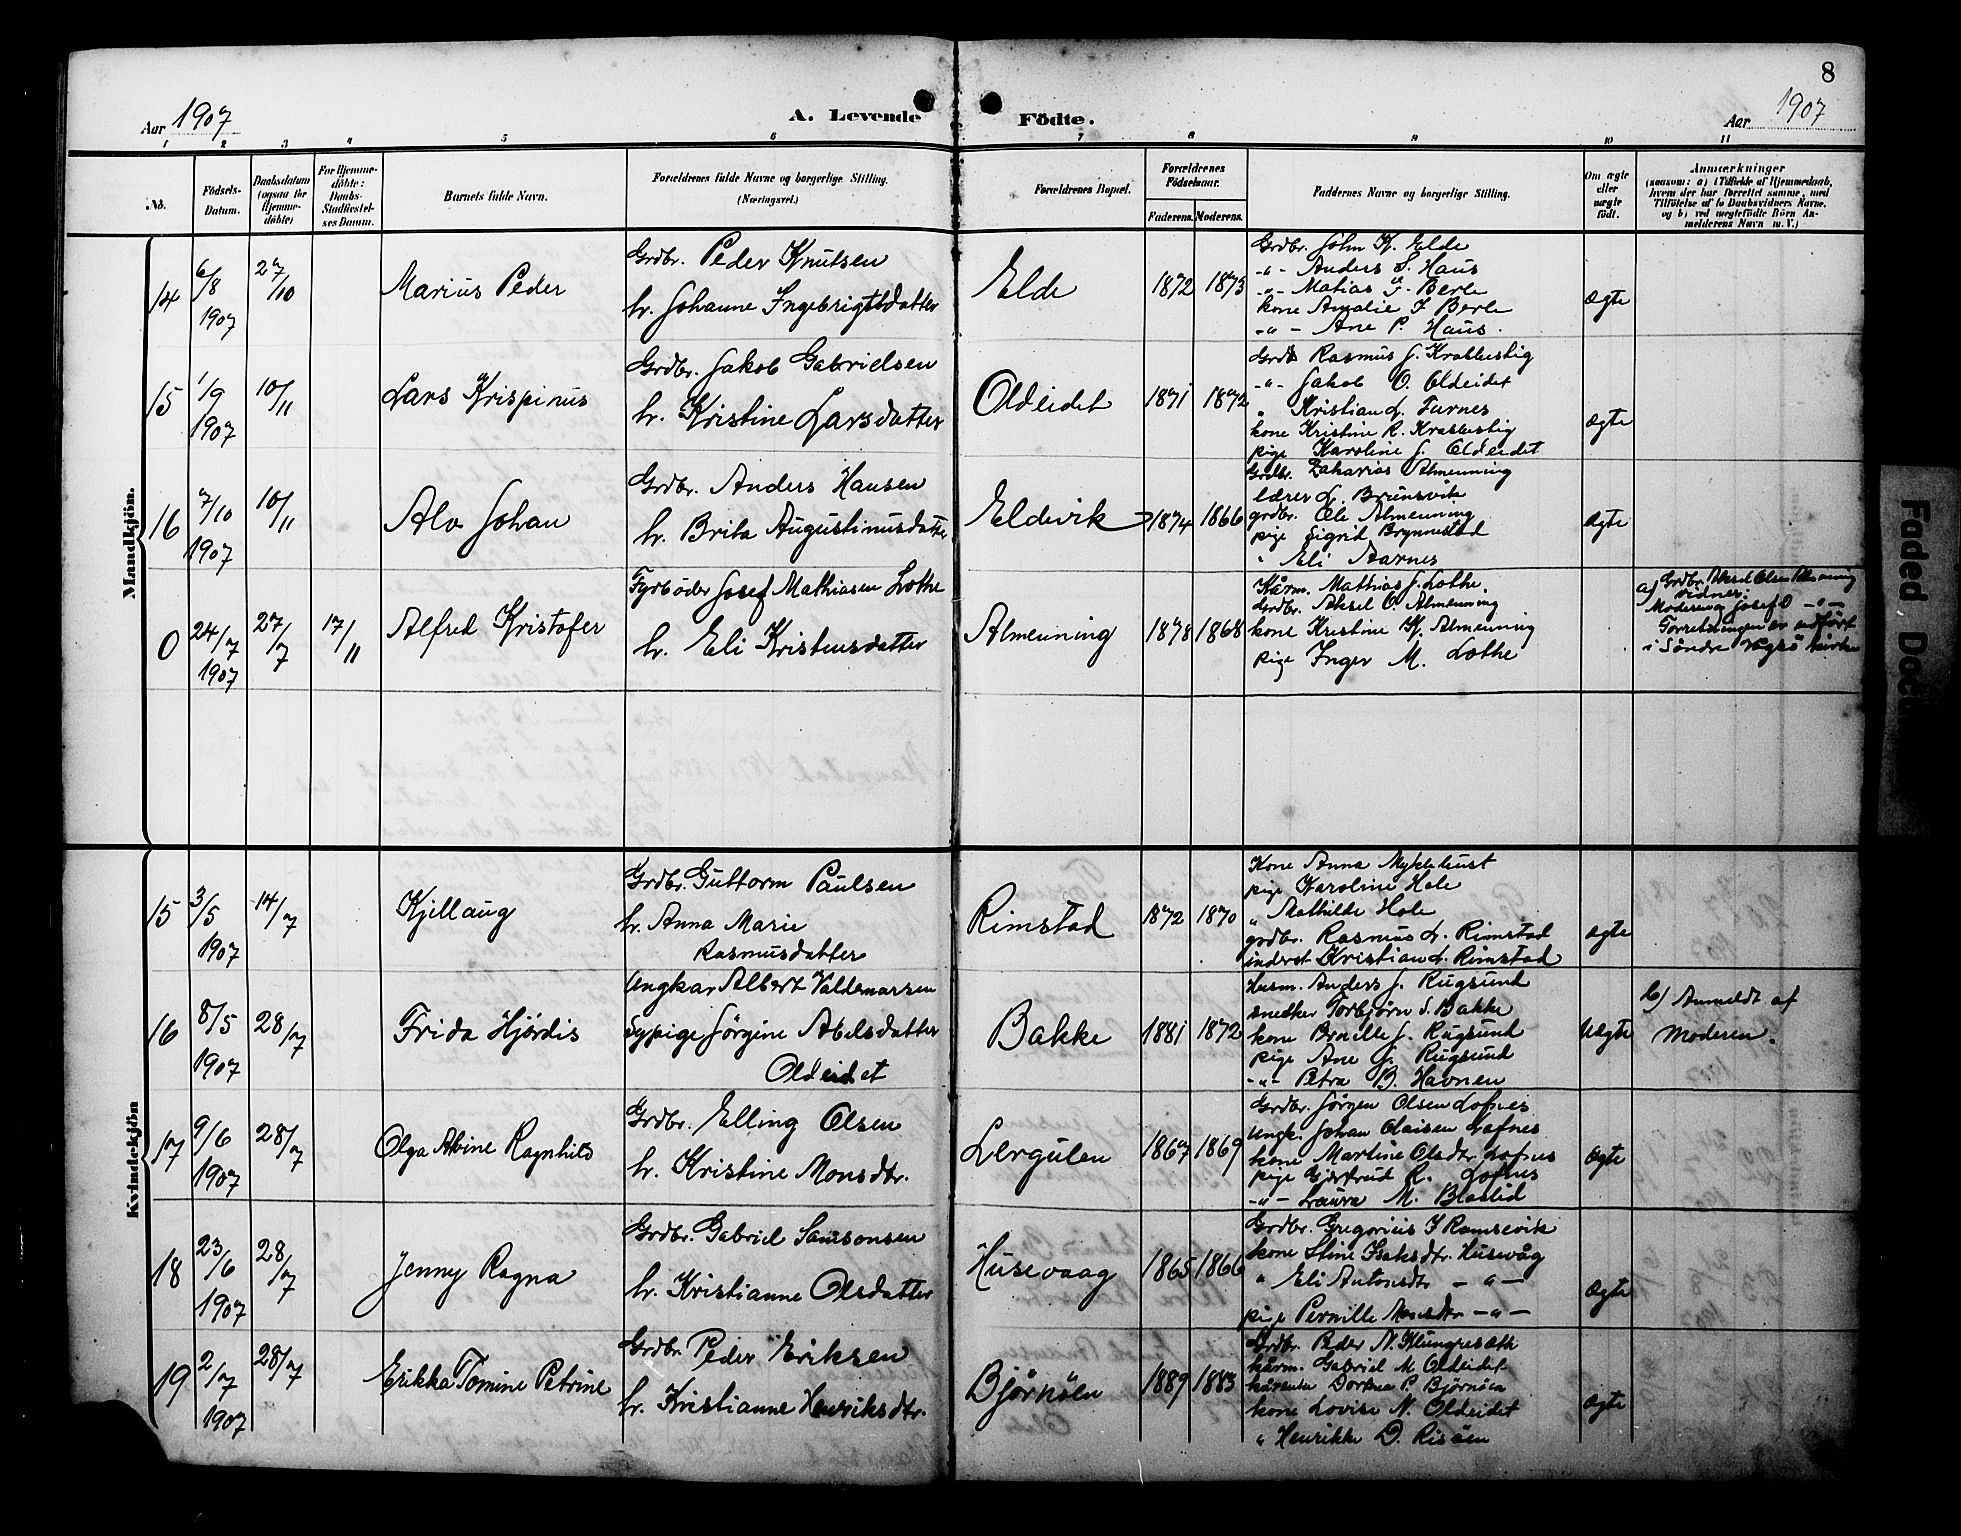 8
Aar 1907
A. Levende Födte.
Aar 1907
1 2 3 4 5 6 7 8 9 10 11
No.
Födsels-Datum.
Daabsdatum (ogsaa for Hjemme-döbte)
For Hjemme-döbte: Daabs-Stadfæstel-ses Datum.
Barnets fulde Navn.
Forældrenes fulde Navne og borgerlige Stilling.
(Næringsvei.)
Forældrenes Bopæl.
Forældrenes Födselsaar.
Faderens. Moderens.
Faddernes Navne og borgerlige Stilling.
Om ægte eller uægte født.
Anmærkninger
(saasom: a) i Tilfælde af Hjemmedaab,
hvem der har forrettet samme, med
Tilföielse af to Daabsvidners Navne,
og b) ved uægtefödte Börn An-
melderens Navn m. V.)
Mandkjön.
14 6/8 1907 27/10 Marius Peder
Grdbr. Peder Knutsen
h. Johanne Ingebrigtsdatter
Elde 1872 1873
Grdbr. John K. Elde
-"- Anders S. Haus
-"- Matias J. Berle
kone Amalie J Berle
-"- Ane P. Haus.
ægte
15 1/9 1907 10/11 Lars Krispinus
Grdbr. Jakob Gabrielsen
h. Kristine Larsdatter
Oldeidet 1871 1872
Grdb Rasmus J. Krabbestig
-"- Jakob O. Oldeidet
" Kristian L. Furnes
kone Kristine R. Krabbestig
pige Karoline J. Oldeidet
ægte
16 7/10 1907 10/11 Alv Johan
Grdbr. Anders Hansen
h. Brita Augustinusdatter
Eldevik 1874 1866
Grdbr. Zakarias Almenning
lærer L. Brunsvik
grdbr. Ole Almenning
pige Sigrid Brynnestad
" Eli Aarnes
ægte
0 24/7 1907 27/7 17/11 Alfred Kristofer
Fyrbøder Josef Mathiasen Lothe
h. Eli Kristensdatter
Almenning 1878 1868
Kårm. Mathias J. Lothe.
Grdbr. Aksel O. Almenning
kone Kristine K. Almenning
pige Inger M. Lothe
a) Grdbr. Aksel Olsen Almening
vidner:
Moderen og Josef O -"-
Forretningen er udført
i Søndre Vågsø kirke
Kvindekjön
15 3/5 1907 14/7 Kjellaug
Grdbr. Guttorm Paulsen
h. Anna Marie
Rasmusdatter
Rimstad 1872 1870
Kone Anna Myklebust
pige Karoline Hole
" Mathilde Hole
grdbr. Rasmus L. Rimstad
inderst Kristian L. Rimstad
ægte
16 8/5 1907 28/7 Frida Hjördis
Ungkar Albert Valdemarsen
Sypige Jörgine Abelsdatter
Oldeidet
Bakke 1881 1872
Husm. Anders J. Rugsund
snedker Torbjørn S. Bakke
kone J. Rugsund
pige Ane J. Rugsund
-"- Petra B. Havnen
Uægte
b) Anmeldt af
Moderen.
17 9/6 1907 28/7 Olga Alvine Ragnhild
Grdbr. Elling Olsen
h. Kristine Monsdtr.
Lergulen 1867 1869
Grdbr. Jörgen Olsen Lofnes
Ungk. Johan Olaisen Lofnes
kone Martine Olsdtr. Lofnes
pige Gjertrud R. Lofnes
-"- Laura M. Blaalid
ægte
18 23/6 1907 28/7 Jenny Ragna
Grdbr. Gabriel Samsonsen
h. Kristianne Olsdatter
Husevaag 1865 1866
Grdbr. Gregorius J Ramsevik
kone Stine Isaksdtr. Husevåg
" Eli Antonsdtr -"-
pige Pernille Monsdtr -"-
ægte
19 2/7 1907 28/7 Erikka Tomine Petrine
Grdbr. Peder Eriksen
h. Kristianne Henriksdtr.
Björnöen 1889 1883
Grdbr. Peder N. Klungresæth
kårm. Gabriel M. Oldeidet
Dortea P. Björnöen
kone Lovise N. Oldeidet
" Henrikke D. Risöen
ægte
Faded Doc